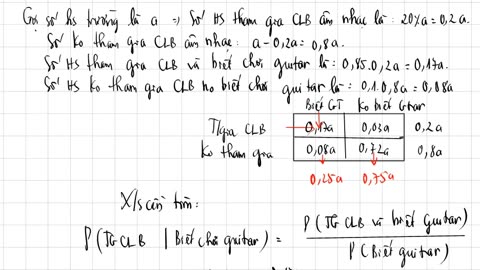 Gọi số hs trường là a => Số HS tham gia CLB âm nhạc là: 20%a = 0,2a.
Số Ko tham gia CLB âm nhạc: a - 0,2a = 0,8a.
Số HS tham gia CLB và biết chơi guitar là: 0,85.0,2a = 0,17a.
Số HS Ko tham gia CLB mà biết chơi guitar là: 0,1.0,8a = 0,08a
Biết GT Ko biết Gtar
T/gia CLB 0,17a 0,03a 0,2a
Ko tham gia 0,08a 0,72a 0,8a
0,25a 0,75a
X/s cần tìm:
P(TG CLB | Biết chơi guitar) = P(TG CLB và biết Guitar)
P(Biết guitar)